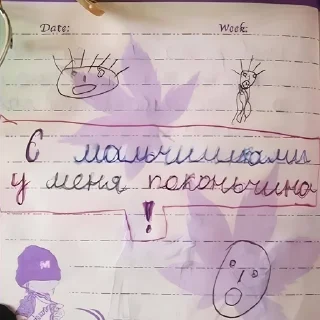 Date: Week:
С мальчишками
у меня поконьчино
!
M